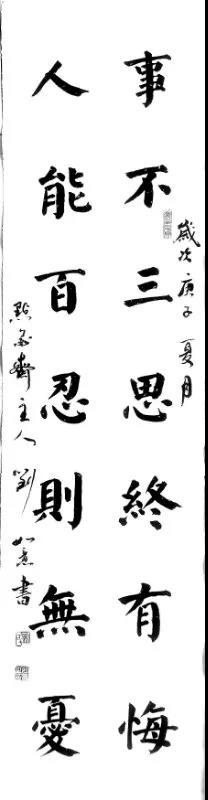 歲次庚子夏月
事不三思終有悔
人能百忍則無憂
齋主人劉如意書